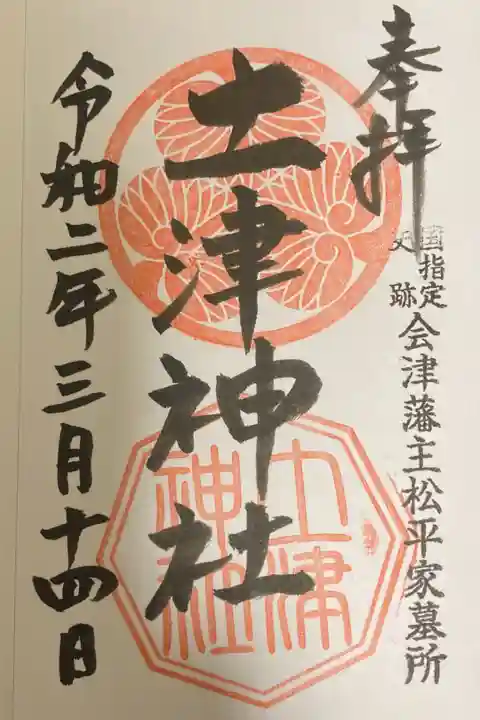 奉拝
国指定
史跡
会津藩主松平家墓所
土津神社
土津
神社
令和二年三月十四日